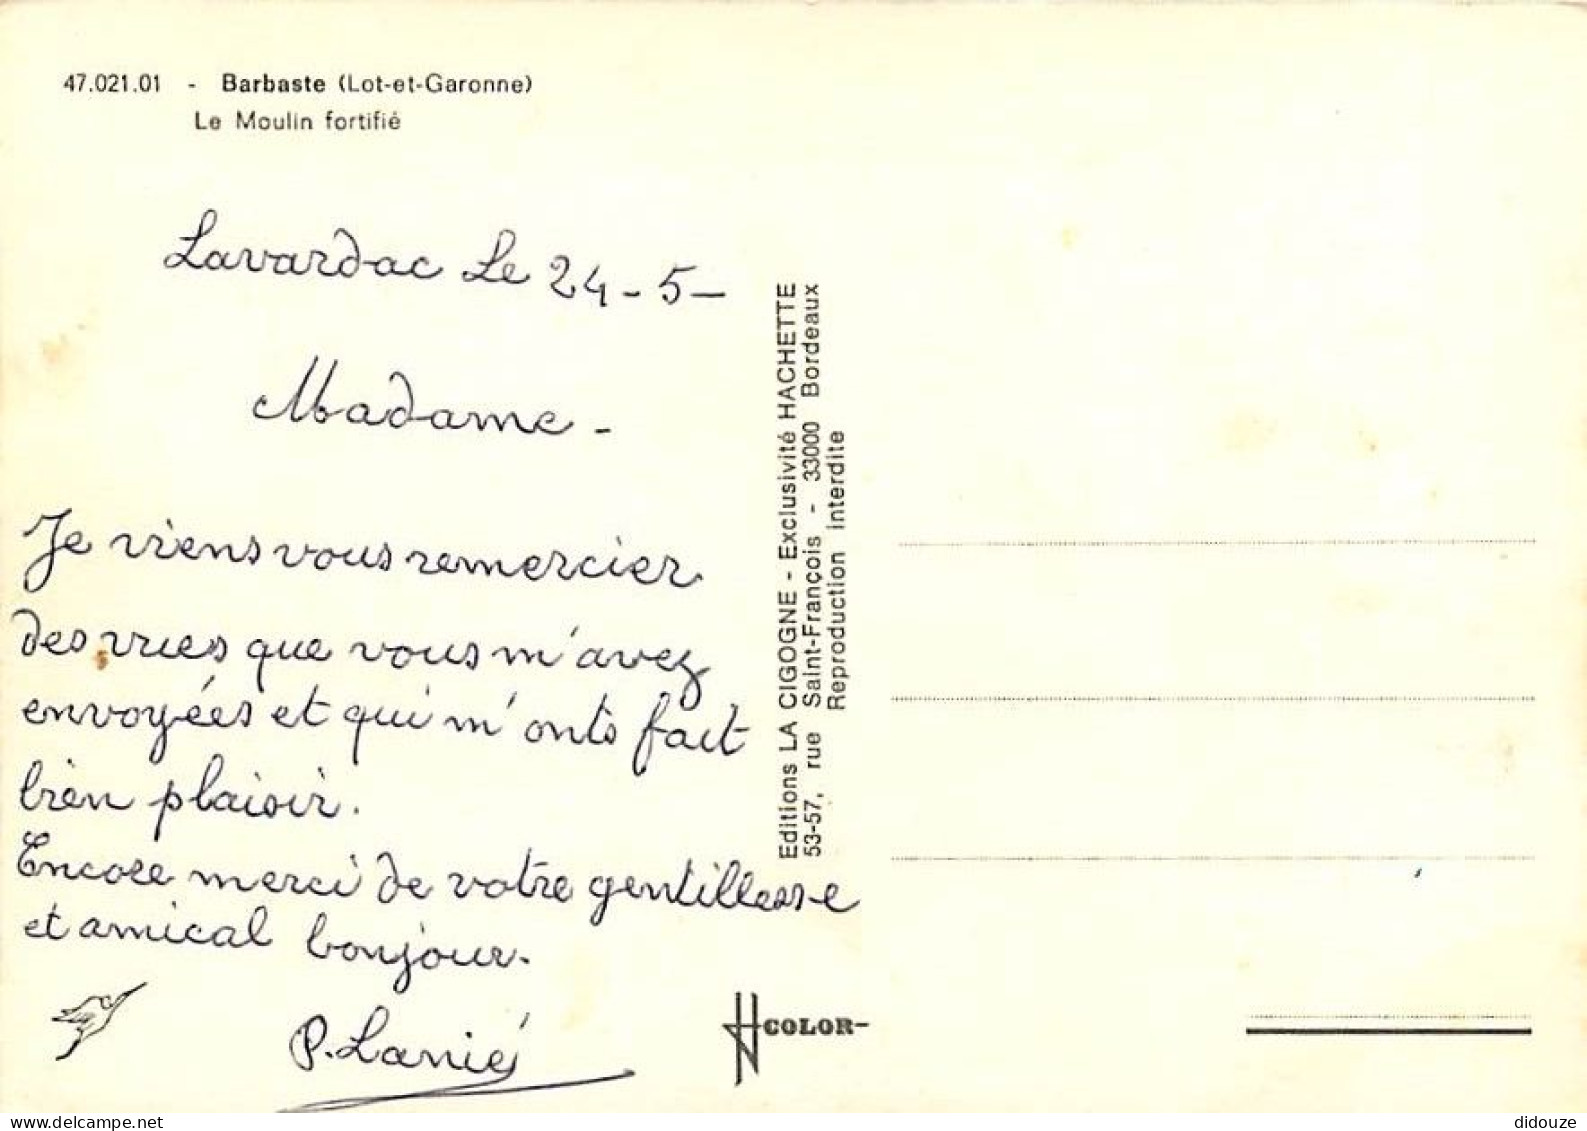 47.021.01 - Barbaste (Lot-et-Garonne)
Le Moulin fortifié
Lavardac Le 24-5-
Madame-
Je viens vous remercier
des vues que vous m'avez
envoyées et qui m'onts fait
bien plaisir.
Encore merci de votre gentillesse
et amical bonjour.
P. Lanié
Editions LA CIGOGNE - Exclusivité HACHETTE
53-57, rue Saint-François - 33000 Bordeaux
Reproduction interdite
COLOR
didouze